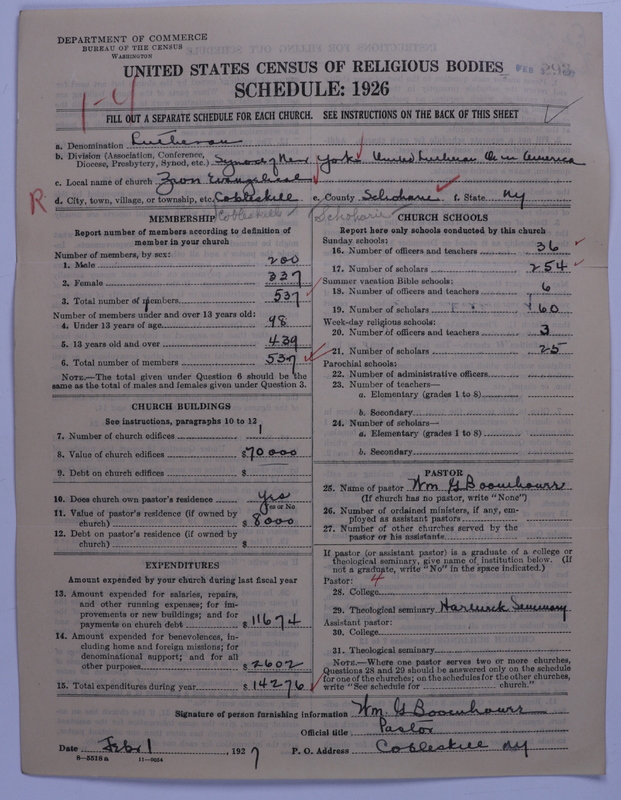 DEPARTMENT OF COMMERCE
BUREAU OF THE CENSUS
WASHINGTON
UNITED STATES CENSUS OF RELIGIOUS BODIES
SCHEDULE: 1926
1-4
FILL OUT A SEPARATE SCHEDULE FOR EACH CHURCH. SEE INSTRUCTIONS ON THE BACK OF THIS SHEET
a. Denomination Lutheran
b. Division (Association, Conference, Diocese, Presbytery, Synod, etc.) Synod of New York United Lutheran Ch in America
c. Local name of church Zion Evangelical
R d. City, town, village, or township, etc. Cobleskill e. County Schoharie f. State NY
Cobleskill Schoharie
MEMBERSHIP
Report number of members according to definition of
member in your church
Number of members, by sex:
1. Male 200
2. Female 337
3. Total number of members 537
Number of members under and over 13 years old:
4. Under 13 years of age 98
5. 13 years old and over 439
6. Total number of members 537
NOTE.—The total given under Question 6 should be the
same as the total of males and females given under Question 3.
CHURCH BUILDINGS
See instructions, paragraphs 10 to 12
7. Number of church edifices 1
8. Value of church edifices $70000
9. Debt on church edifices $
10. Does church own pastor's residence yes
Yes or No
11. Value of pastor's residence (if owned by
church) $8000
12. Debt on pastor's residence (if owned by
church) $
EXPENDITURES
Amount expended by your church during last fiscal year
13. Amount expended for salaries, repairs,
and other running expenses; for im-
provements or new buildings; and for
payments on church debt $11674
14. Amount expended for benevolences, in-
cluding home and foreign missions; for
denominational support; and for all
other purposes $2602
15. Total expenditures during year $14276
CHURCH SCHOOLS
Report here only schools conducted by this church
Sunday schools:
16. Number of officers and teachers 36
17. Number of scholars 254
Summer vacation Bible schools:
18. Number of officers and teachers 6
19. Number of scholars 60
Week-day religious schools:
20. Number of officers and teachers 3
21. Number of scholars 25
Parochial schools:
22. Number of administrative officers
23. Number of teachers—
a. Elementary (grades 1 to 8)
b. Secondary
24. Number of scholars—
a. Elementary (grades 1 to 8)
b. Secondary
PASTOR
25. Name of pastor Wm G Boomhower
(If church has no pastor, write "None")
26. Number of ordained ministers, if any, em-
ployed as assistant pastors
27. Number of other churches served by the
pastor or his assistants
If pastor (or assistant pastor) is a graduate of a college or
theological seminary, give name of institution below. (If
not a graduate, write "No" in the space indicated.)
Pastor: 4
28. College
29. Theological seminary Hartwick Seminary
Assistant pastor:
30. College
31. Theological seminary
NOTE.—Where one pastor serves two or more churches,
Questions 28 and 29 should be answered only on the schedule
for one of the churches; on the schedules for the other churches,
write "See schedule for church."
Signature of person furnishing information Wm. G Boomhower
Official title Pastor
Date Feb 1, 1927 P. O. Address Cobleskill NY
8-5518a 11-9034